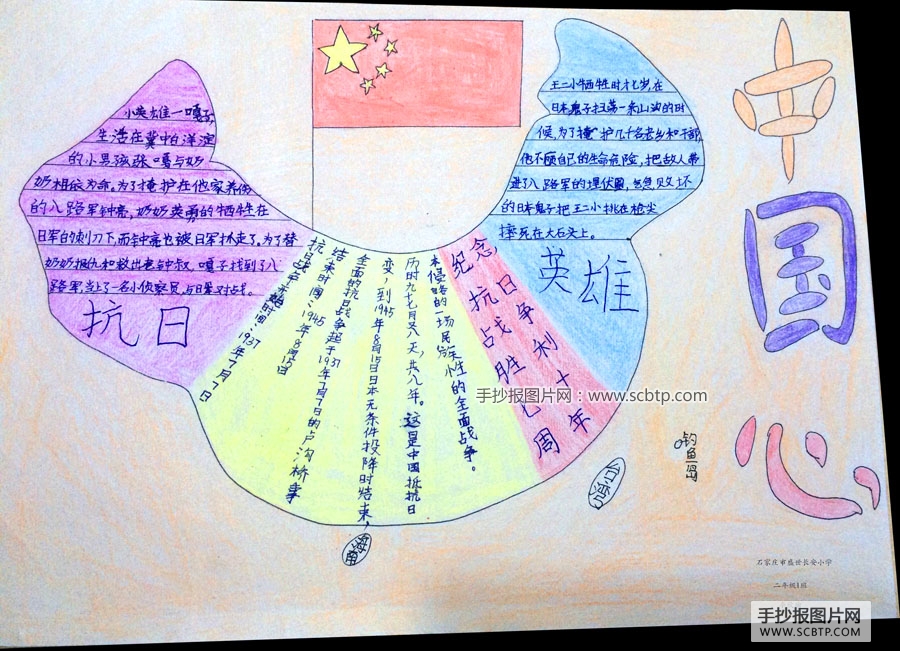 小英雄一嘎子
生活在冀中白洋淀
的小男孩张嘎与奶
奶相依为命。为了掩护在他家养伤
的八路军钟亮，奶奶英勇的牺牲在
日军的刺刀下，而钟亮也被日军抓走了。为了替
奶奶报仇和救出老钟叔，嘎子找到了八
路军当上了一名小侦察员，与日军对战。
抗日
王二小牺牲时才七岁，在
日本鬼子扫荡一条山沟的时
候，为了掩护几十名老乡和干部，
他不顾自己的生命危险，把敌人带
进了八路军的埋伏圈，气急败坏
的日本鬼子把王二小挑在枪尖
摔死在大石头上。
英雄
纪念
抗日
战争
胜利
七十
周年
本侵略的一场民族性的全面战争。
历时九十七月又八天，共八年。这是中国抵抗日
变，到1945年8月15日日本无条件投降时结束，
全面的抗日战争起于1937年7月7日的卢沟桥事
结束时间：1945年8月15日
抗日战争开始时间：1937年7月7日
中国心
钓鱼岛
台湾
手抄报图片网：www.scbtp.com
石家庄市盛世长安小学
二年级1班
手抄报图片网
WWW.SCBTP.COM